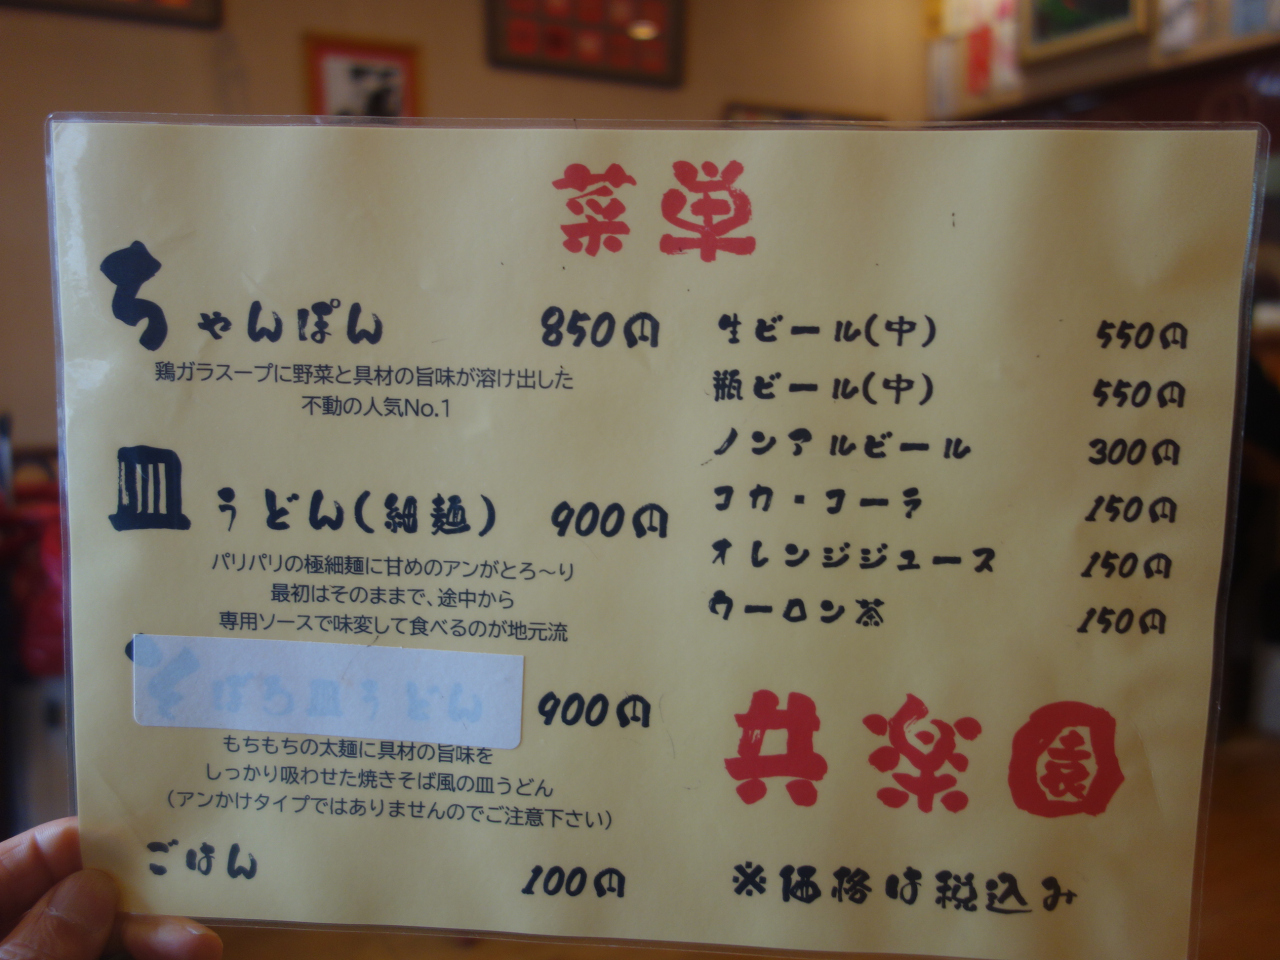 菜単
ちゃんぽん 850円
鶏ガラスープに野菜と具材の旨味が溶け出した
不動の人気No.1
皿うどん(細麺) 900円
パリパリの極細麺に甘めのアンがとろ～り
最初はそのままで、途中から
専用ソースで味変して食べるのが地元流
そぼろ皿うどん 900円
もちもちの太麺に具材の旨味を
しっかり吸わせた焼きそば風の皿うどん
(アンかけタイプではありませんのでご注意下さい)
ごはん 100円
生ビール(中) 550円
瓶ビール(中) 550円
ノンアルビール 300円
コカ・コーラ 150円
オレンジジュース 150円
ウーロン茶 150円
共楽園
※価格は税込み